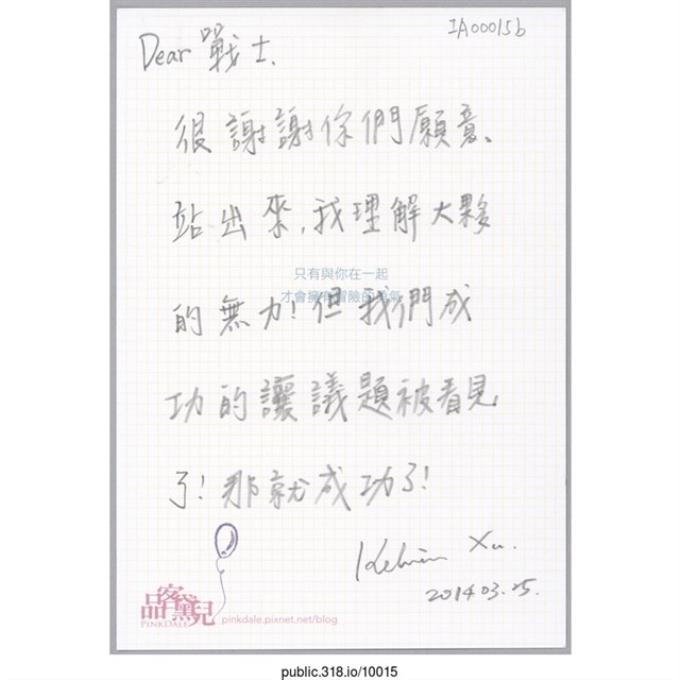 IA00015b
Dear 戰士、
很謝謝你們願意、
站出來，我理解大夥
只有與你在一起
才會擁有冒險的勇氣
的無力！但我們成
功的讓議題被看見
了！那就成功了！
Kelvin Xu.
2014.03.25.
品客黛兒
PINKDALE
pinkdale.pixnet.net/blog
public.318.io/10015